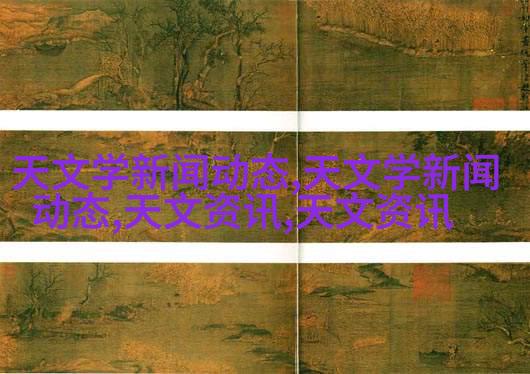 天文学新闻动态,天文学新闻
动态,天文资讯,天文资讯